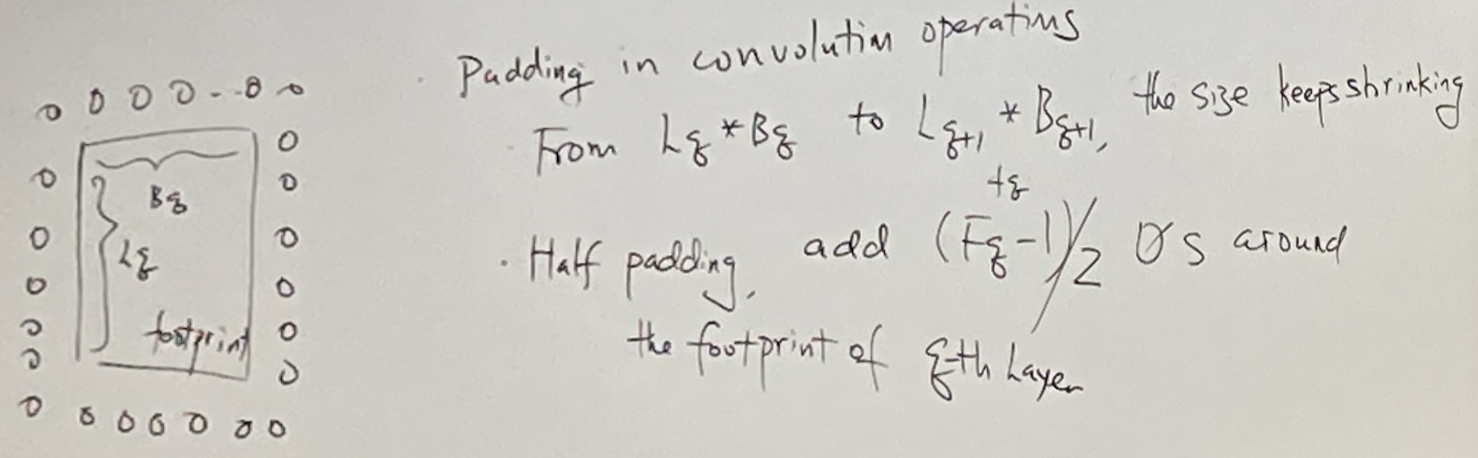 0 0 0 0 - - 0 0
0 0
0 0
0 0
0 0
0 0
0 0
0 0 0 0 0 0 0
Bq
Lq
footprint
· Padding in convolution operations
· From Lq * Bq to Lq+1 * Bq+1, the size keeps shrinking
· Half padding, add (Fq - 1)/2 0's around
the footprint of q-th Layer